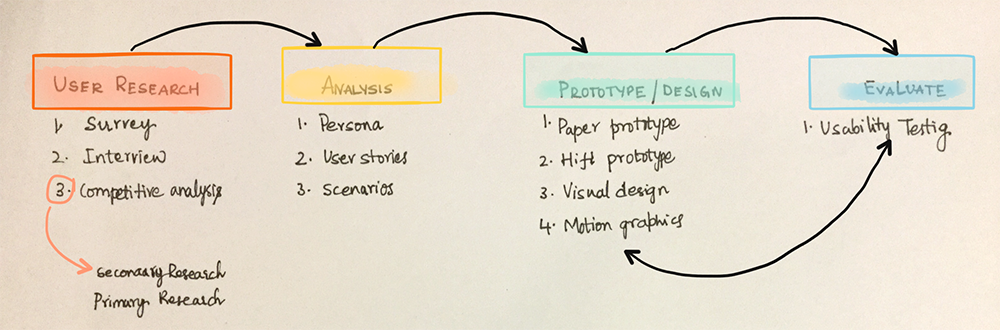 USER RESEARCH
1. Survey
2. Interview
3. Competitive analysis
Secondary Research
Primary Research
ANALYSIS
1. Persona
2. User stories
3. Scenarios
PROTOTYPE/DESIGN
1. Paper prototype
2. Hifi prototype
3. Visual design
4. Motion graphics
EVALUATE
1. Usability Testig